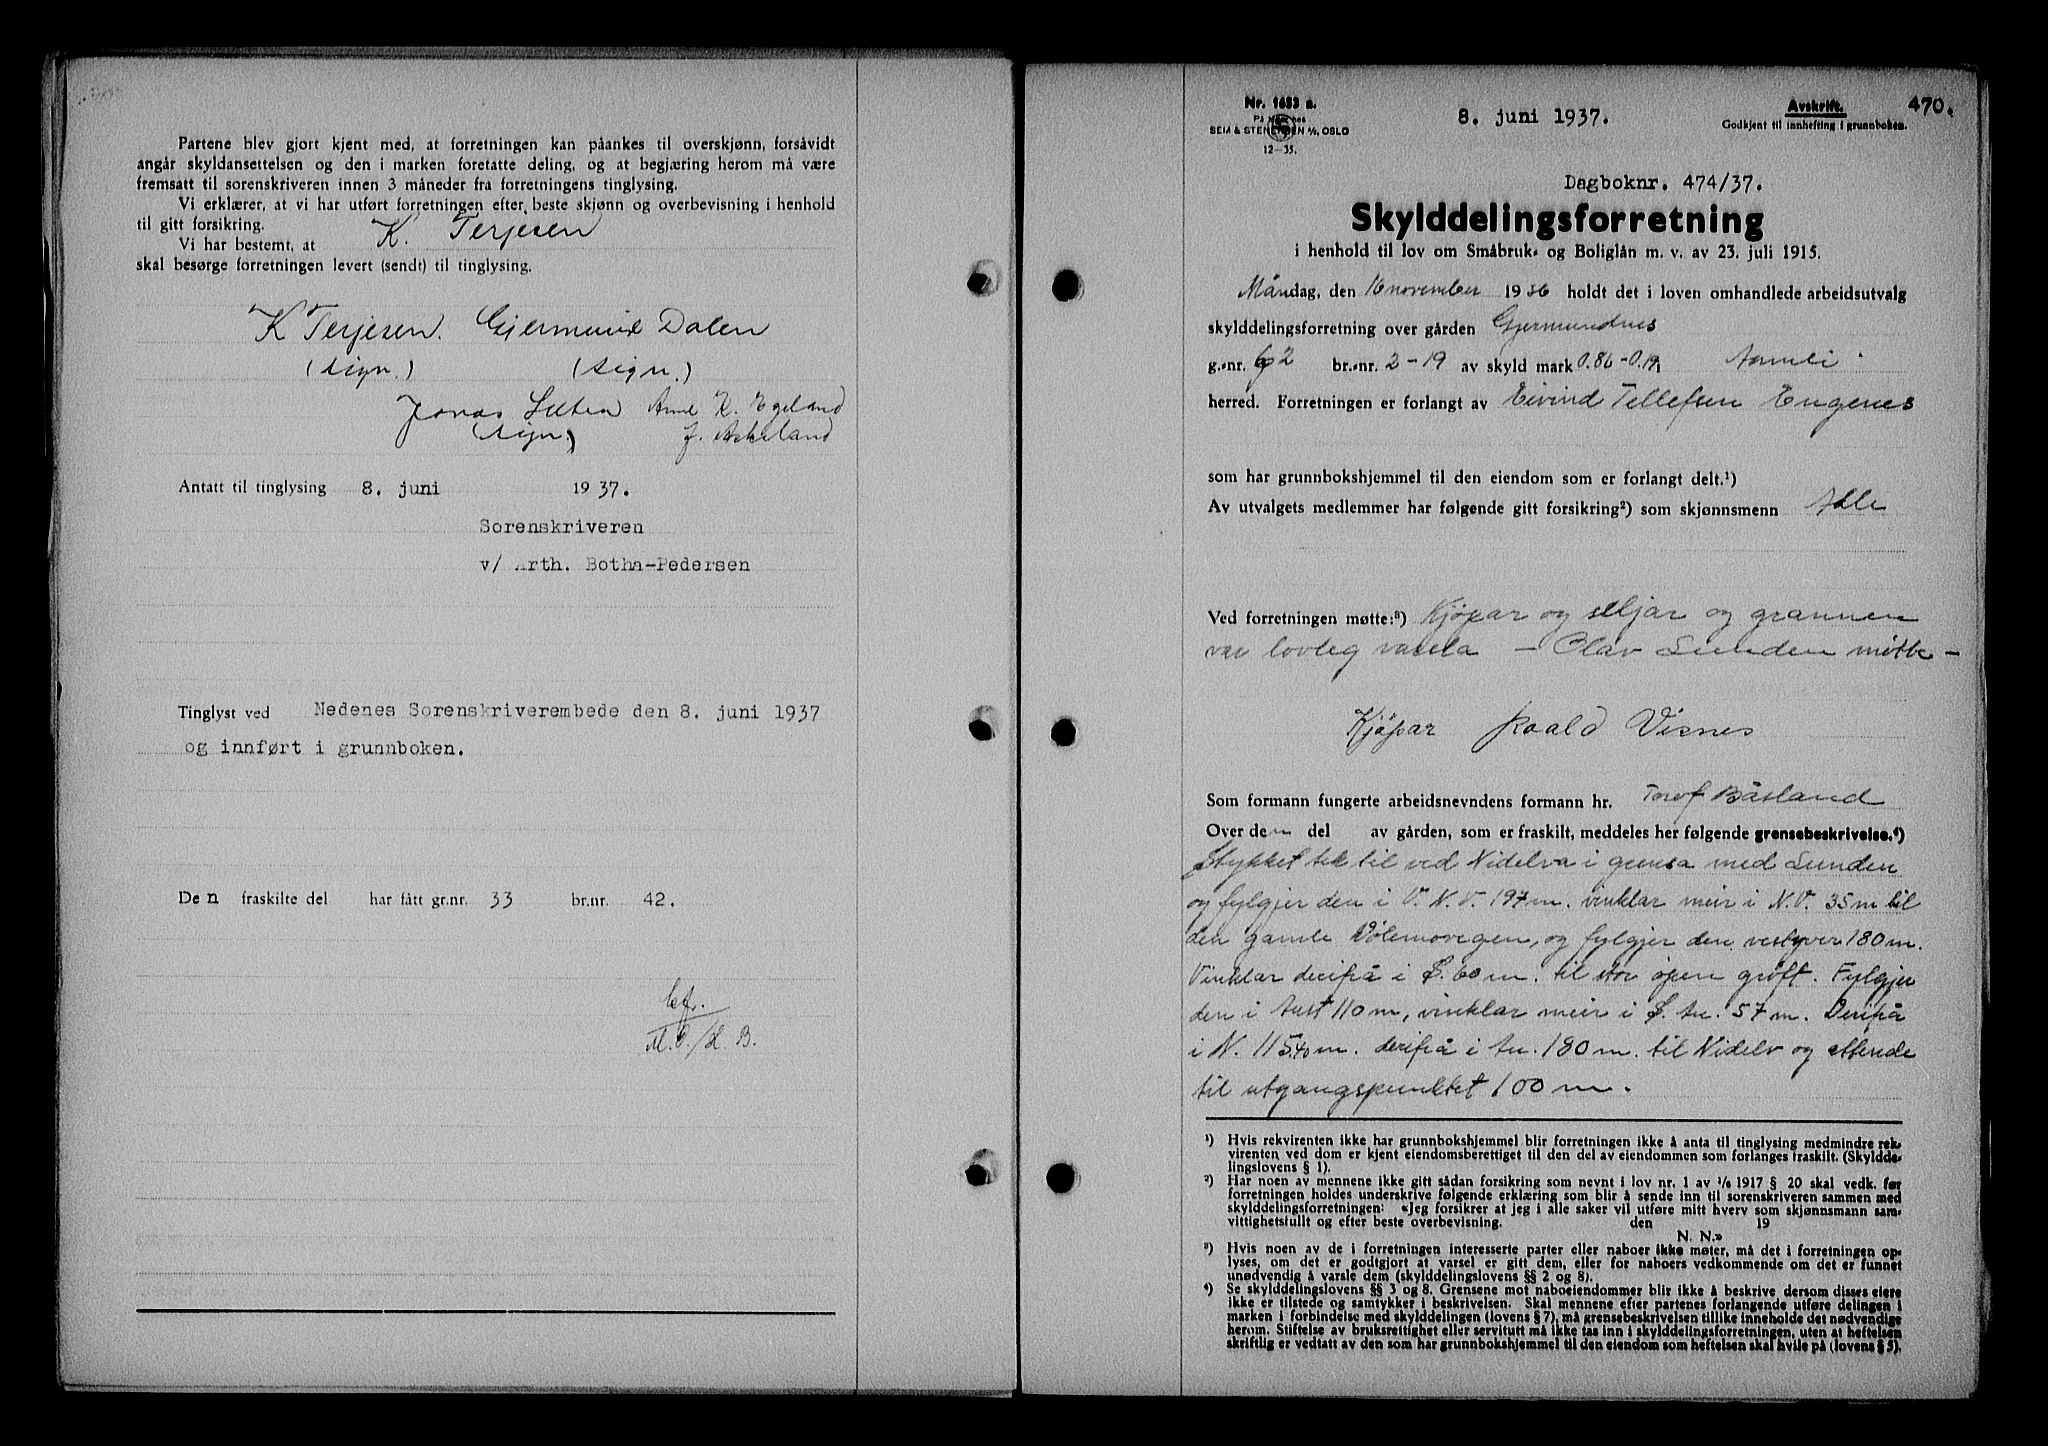 Partene blev gjort kjent med, at forretningen kan påankes til overskjønn, forsåvidt
angår skyldansettelsen og den i marken foretatte deling, og at begjæring herom må være
fremsatt til sorenskriveren innen 3 måneder fra forretningens tinglysing.
Vi erklærer, at vi har utført forretningen efter beste skjønn og overbevisning i henhold
til gitt forsikring.
Vi har bestemt, at K. Terjesen
skal besørge forretningen levert (sendt) til tinglysing.
K Terjesen. Gjermund Dalen
(sign.) (sign.)
Jonas Arne K. Egeland
(sign.) f. Askeland
Antatt til tinglysing 8. juni 1937.
Sorenskriveren
v/ Arth. Botha-Pedersen
Tinglyst ved Nedenes Sorenskriverembede den 8. juni 1937
og innført i grunnboken.
Den fraskilte del har fått gr.nr. 33 br.nr. 42.
Cfr.
M.C./H.B.
Nr. 1633 a.
På lager hos
SEM & STENERSEN A/S, OSLO
12-35.
8. juni 1937.
Avskrift.
Godkjent til innhefting i grunnboken.
470.
Dagboknr. 474/37.
Skylddelingsforretning
i henhold til lov om Småbruk- og Boliglån m. v. av 23. juli 1915.
Måndag, den 16 november 1936 holdt det i loven omhandlede arbeidsutvalg
skylddelingsforretning over gården Gjermundnes
g.nr. 62 br.nr. 2-19 av skyld mark 0.86-0.19 Aamli
herred. Forretningen er forlangt av Eivind Tellefsen Engenes
som har grunnbokshjemmel til den eiendom som er forlangt delt.¹)
Av utvalgets medlemmer har følgende gitt forsikring²) som skjønnsmenn Alle
Ved forretningen møtte:³) Kjöpar og seljar og grannen
var lovleg varsla - Olav Lunden møtte-
Kjöpar Roald Visnes
Som formann fungerte arbeidsnevndens formann hr. Torof Båsland
Over den del av gården, som er fraskilt, meddeles her følgende grensebeskrivelse.⁴)
Stykket tek til ved Nidelva i grensa med Lunden
og fylgjer den i V.N.V. 197 m. vinklar meir i N.V. 35 m til
den gamle Vølemovegen, og fylgjer den vestyver 180 m.
Vinklar derifrå i S. 60 m. til stor open grøft. Fylgjer
den i Aust 110 m, vinklar meir i S. Au. 57 m. Derifrå
i N. 115,40 m. derifrå i Au. 180 m. til Nidelv og attende
til utgangspunktet 100 m.
¹) Hvis rekvirenten ikke har grunnbokshjemmel blir forretningen ikke å anta til tinglysing medmindre rek-
virenten ved dom er kjent eiendomsberettiget til den del av eiendommen som forlanges fraskilt. (Skyldde-
lingslovens § 1).
²) Har noen av mennene ikke gitt sådan forsikring som nevnt i lov nr. 1 av 1/6 1917 § 20 skal vedk. før
forretningen holdes underskrive følgende erklæring som blir å sende inn til sorenskriveren sammen med
skylddelingsforretningen: «Jeg forsikrer at jeg i alle saker vil utføre mitt hverv som skjønnsmann sam-
vittighetsfullt og efter beste overbevisning. den 19
N. N.»
³) Hvis noen av de i forretningen interesserte parter eller naboer ikke møter, må det i forretningen op-
lyses, om det er godtgjort at varsel er gitt dem, eller for naboers vedkommende om det er funnet
unødvendig å varsle dem (skylddelingslovens §§ 2 og 8).
⁴) Se skylddelingslovens §§ 3 og 8. Grensene mot naboeiendommer blir ikke å beskrive dersom disses eiere
ikke er tilstede og samtykker i beskrivelsen. Skal mennene efter partenes forlangende utføre delingen i
marken i forbindelse med skylddelingen (lovens § 7), må grensebeskrivelsen tillike inneholde det nødvendige
herom. Stiftelse av bruksrettighet eller servitutt må ikke tas inn i skylddelingsforretningen, uten at heftelsen
skriftlig er vedtatt av den som har grunnbokshjemmel til den eiendom som heftelsen skal hvile på (lovens § 5).